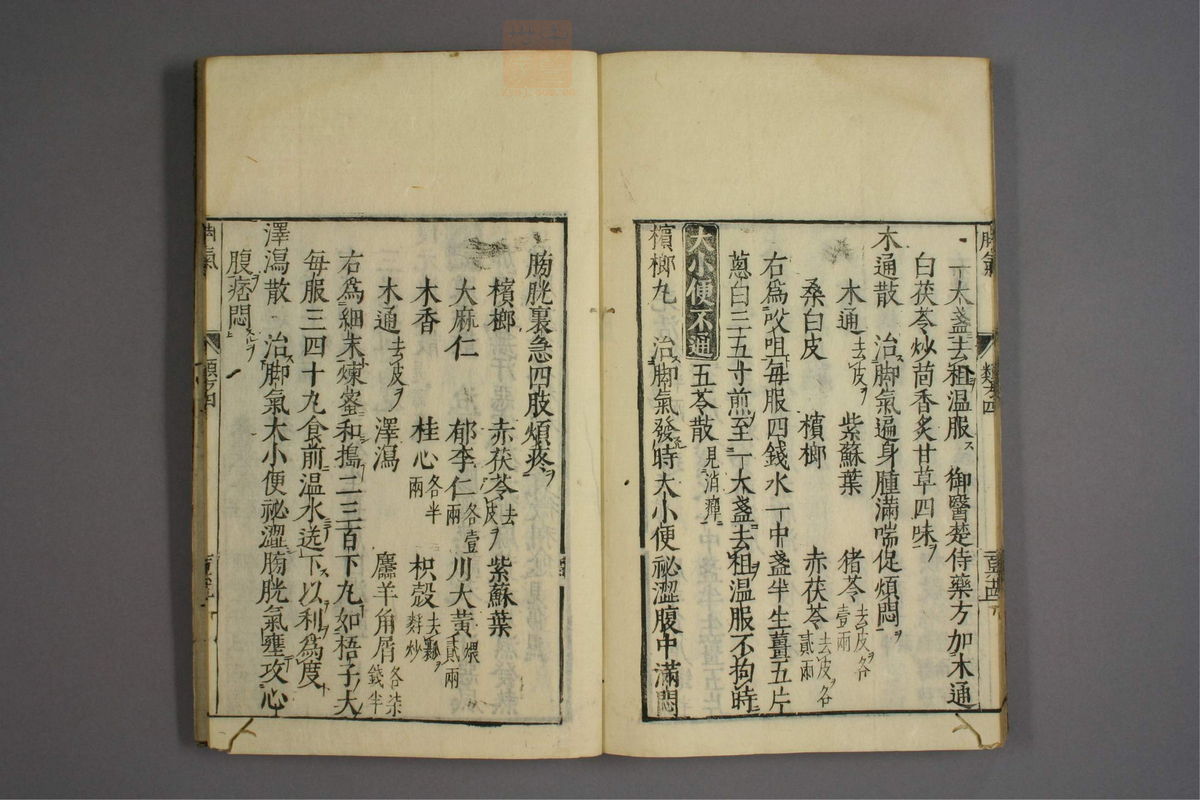 一大盞去柤温服ス 御醫楚侍藥方加木通
白茯苓炒茴香炙甘草四味ヲ
木通散 治ス脚氣遍身腫滿喘促煩悶ヲ
木通去皮ヲ 紫蘇葉 猪苓去皮ヲ各壹兩
桑白皮 檳榔 赤茯苓去皮ヲ各貳兩
右爲㕮咀毎服四錢水一中盞半生薑五片
葱白三五寸煎至一大盞去柤ヲ温服不拘時ニ
大小便不通 五苓散見消癉ニ
檳榔丸 治ス脚氣發時大小便祕澀腹中滿悶
膀胱裏急四肢煩疼ヲ
檳榔 赤茯苓去皮ヲ 紫蘇葉
大麻仁 郁李仁各壹兩 川大黄煨貳兩
木香 桂心各半兩 枳殼去瓤ヲ麩炒
木通去皮ヲ 澤瀉 麢羊角屑各柒錢半
右爲細末煉蜜和搗二三百下丸如梧子大
毎服三四十丸食前温水送下以利爲度ト
澤瀉散 治ス脚氣大小便祕澀膀胱氣壅攻心
腹痞悶ヲ